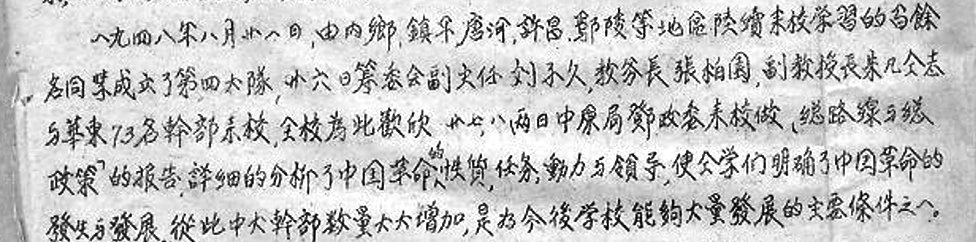 一九四八年八月廿八日,由内鄉,鎮平,唐河,許昌,鄢陵等地區陸續來校学習的百餘
名同学成立了第四大隊,廿六日籌委会副主任刘子久,教务長張柏園,副教授長朱凡仝志
与華東73名幹部来校,全校為此歡欣 廿七,八兩日中原局鄧政委来校做「総路線与総
政策」的报告,詳細的分析了中国革命的性質,任务,動力与領导,使仝学们明確了中国革命的
發生与發展,從此中大幹部数量大大增加,是为今後学校能夠大量發展的主要條件之一。